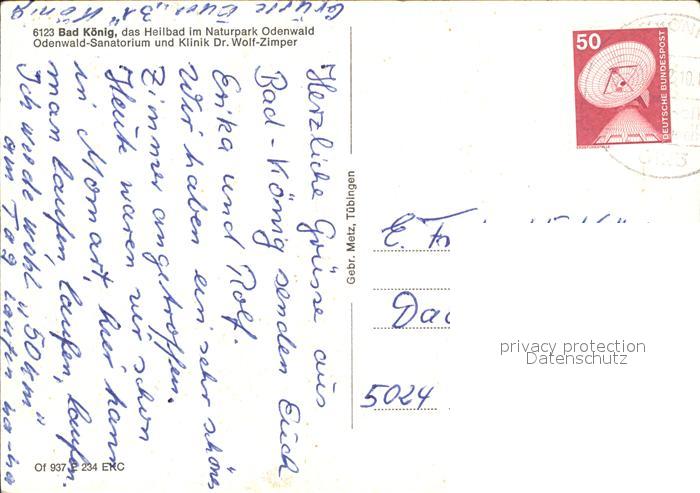 6123 Bad König, das Heilbad im Naturpark Odenwald
Odenwald-Sanatorium und Klinik Dr. Wolf-Zimper
Herzliche Grüsse aus
Bad-König senden Euch
Erika und Rolf.
Wir haben ein sehr schönes
Zimmer angetroffen.
Heute waren wir schon
in Momart, hier kann
man laufen, laufen, laufen.
Ich würde wohl "50 km"
am Tag laufen na-na
Grüsse
König
Gebr. Metz, Tübingen
50
DEUTSCHE BUNDESPOST
E.
5024
privacy protection
Datenschutz
Of 937 E 234 EKC